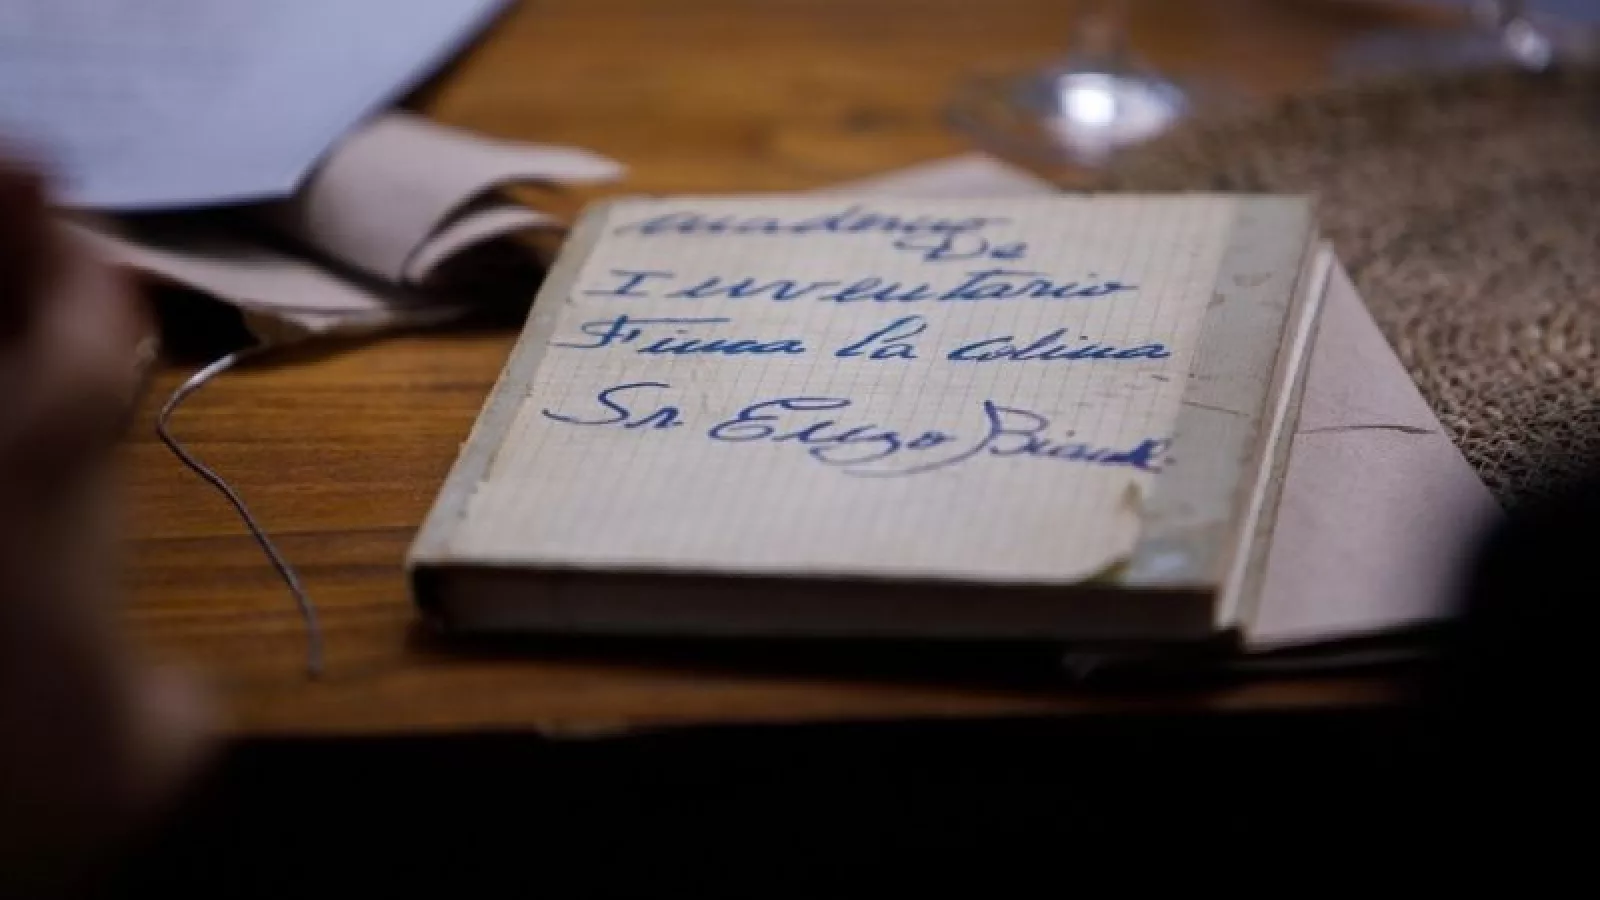 cuaderno
De
Inventario
Finca la Colina
Sr. Enzo Bianchi